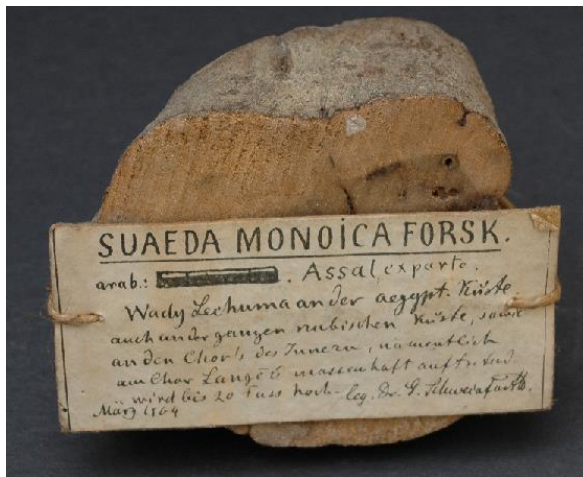 SUAEDA MONOICA FORSK.
arab.: . Assal, ex parte.
Wady Lechuma an der aegypt. Küste
auch an der ganzen nubischen Küste, sowie
an den Chor's des Innern, namentlich
am Chor massenhaft auftretend.
wird bis 20 Fuss hoch. leg. Dr. G. Schweinfurth.
März 1864